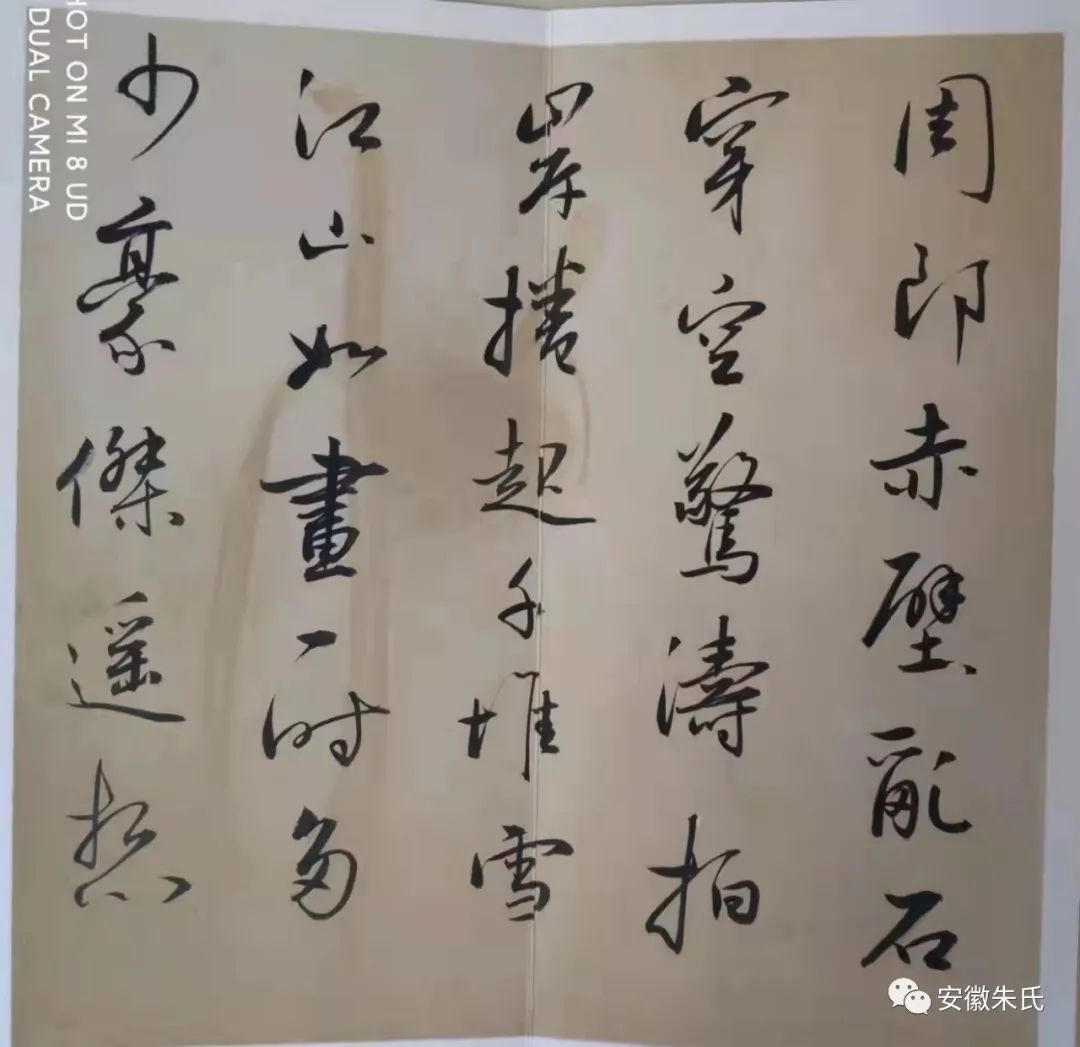 周郎赤壁亂石
穿空驚濤拍
岸捲起千堆雪
江山如畫一时多
少豪傑遥想
SHOT ON MI 8 UD
DUAL CAMERA
安徽朱氏